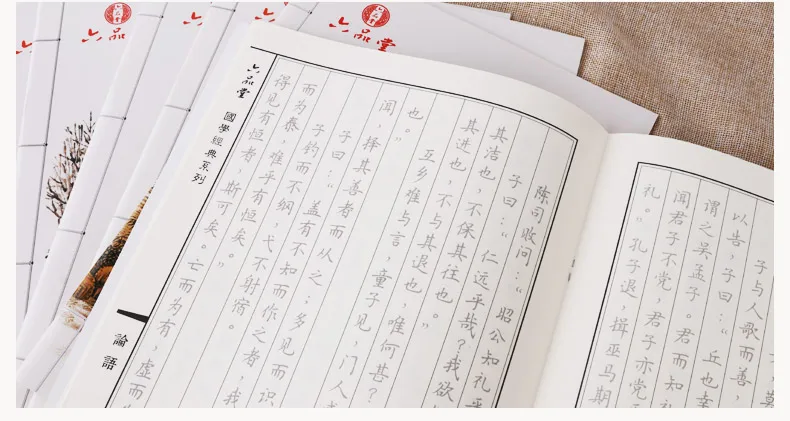 六品堂
六品堂
國學經典系列
論語
子与人歌而善,
以告,子曰:“丘也幸
谓之吴孟子。君而知礼
闻君子不党,君子亦党
礼。”孔子退,揖巫马期
陈司败问:“昭公知礼乎
子曰:“仁远乎哉?我欲
其洁也,不保其往也。”
其进也,不与其退也,唯何甚?
互乡难与言,童子见,门人
也。”
闻,择其善者而从之;多见而识
子曰:“盖有不知而作之者,我
子钓而不纲,弋不射宿。
而为泰,难乎有恒矣。”
得见有恒者,斯可矣。亡而为有,虚而